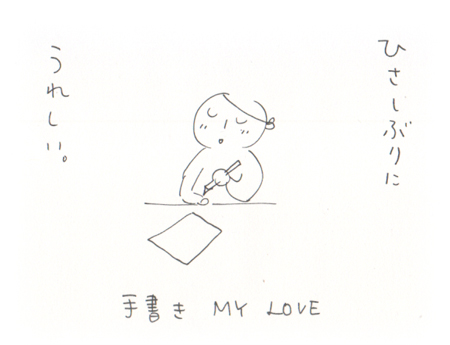 ひさしぶりに
うれしい。
手書き MY LOVE